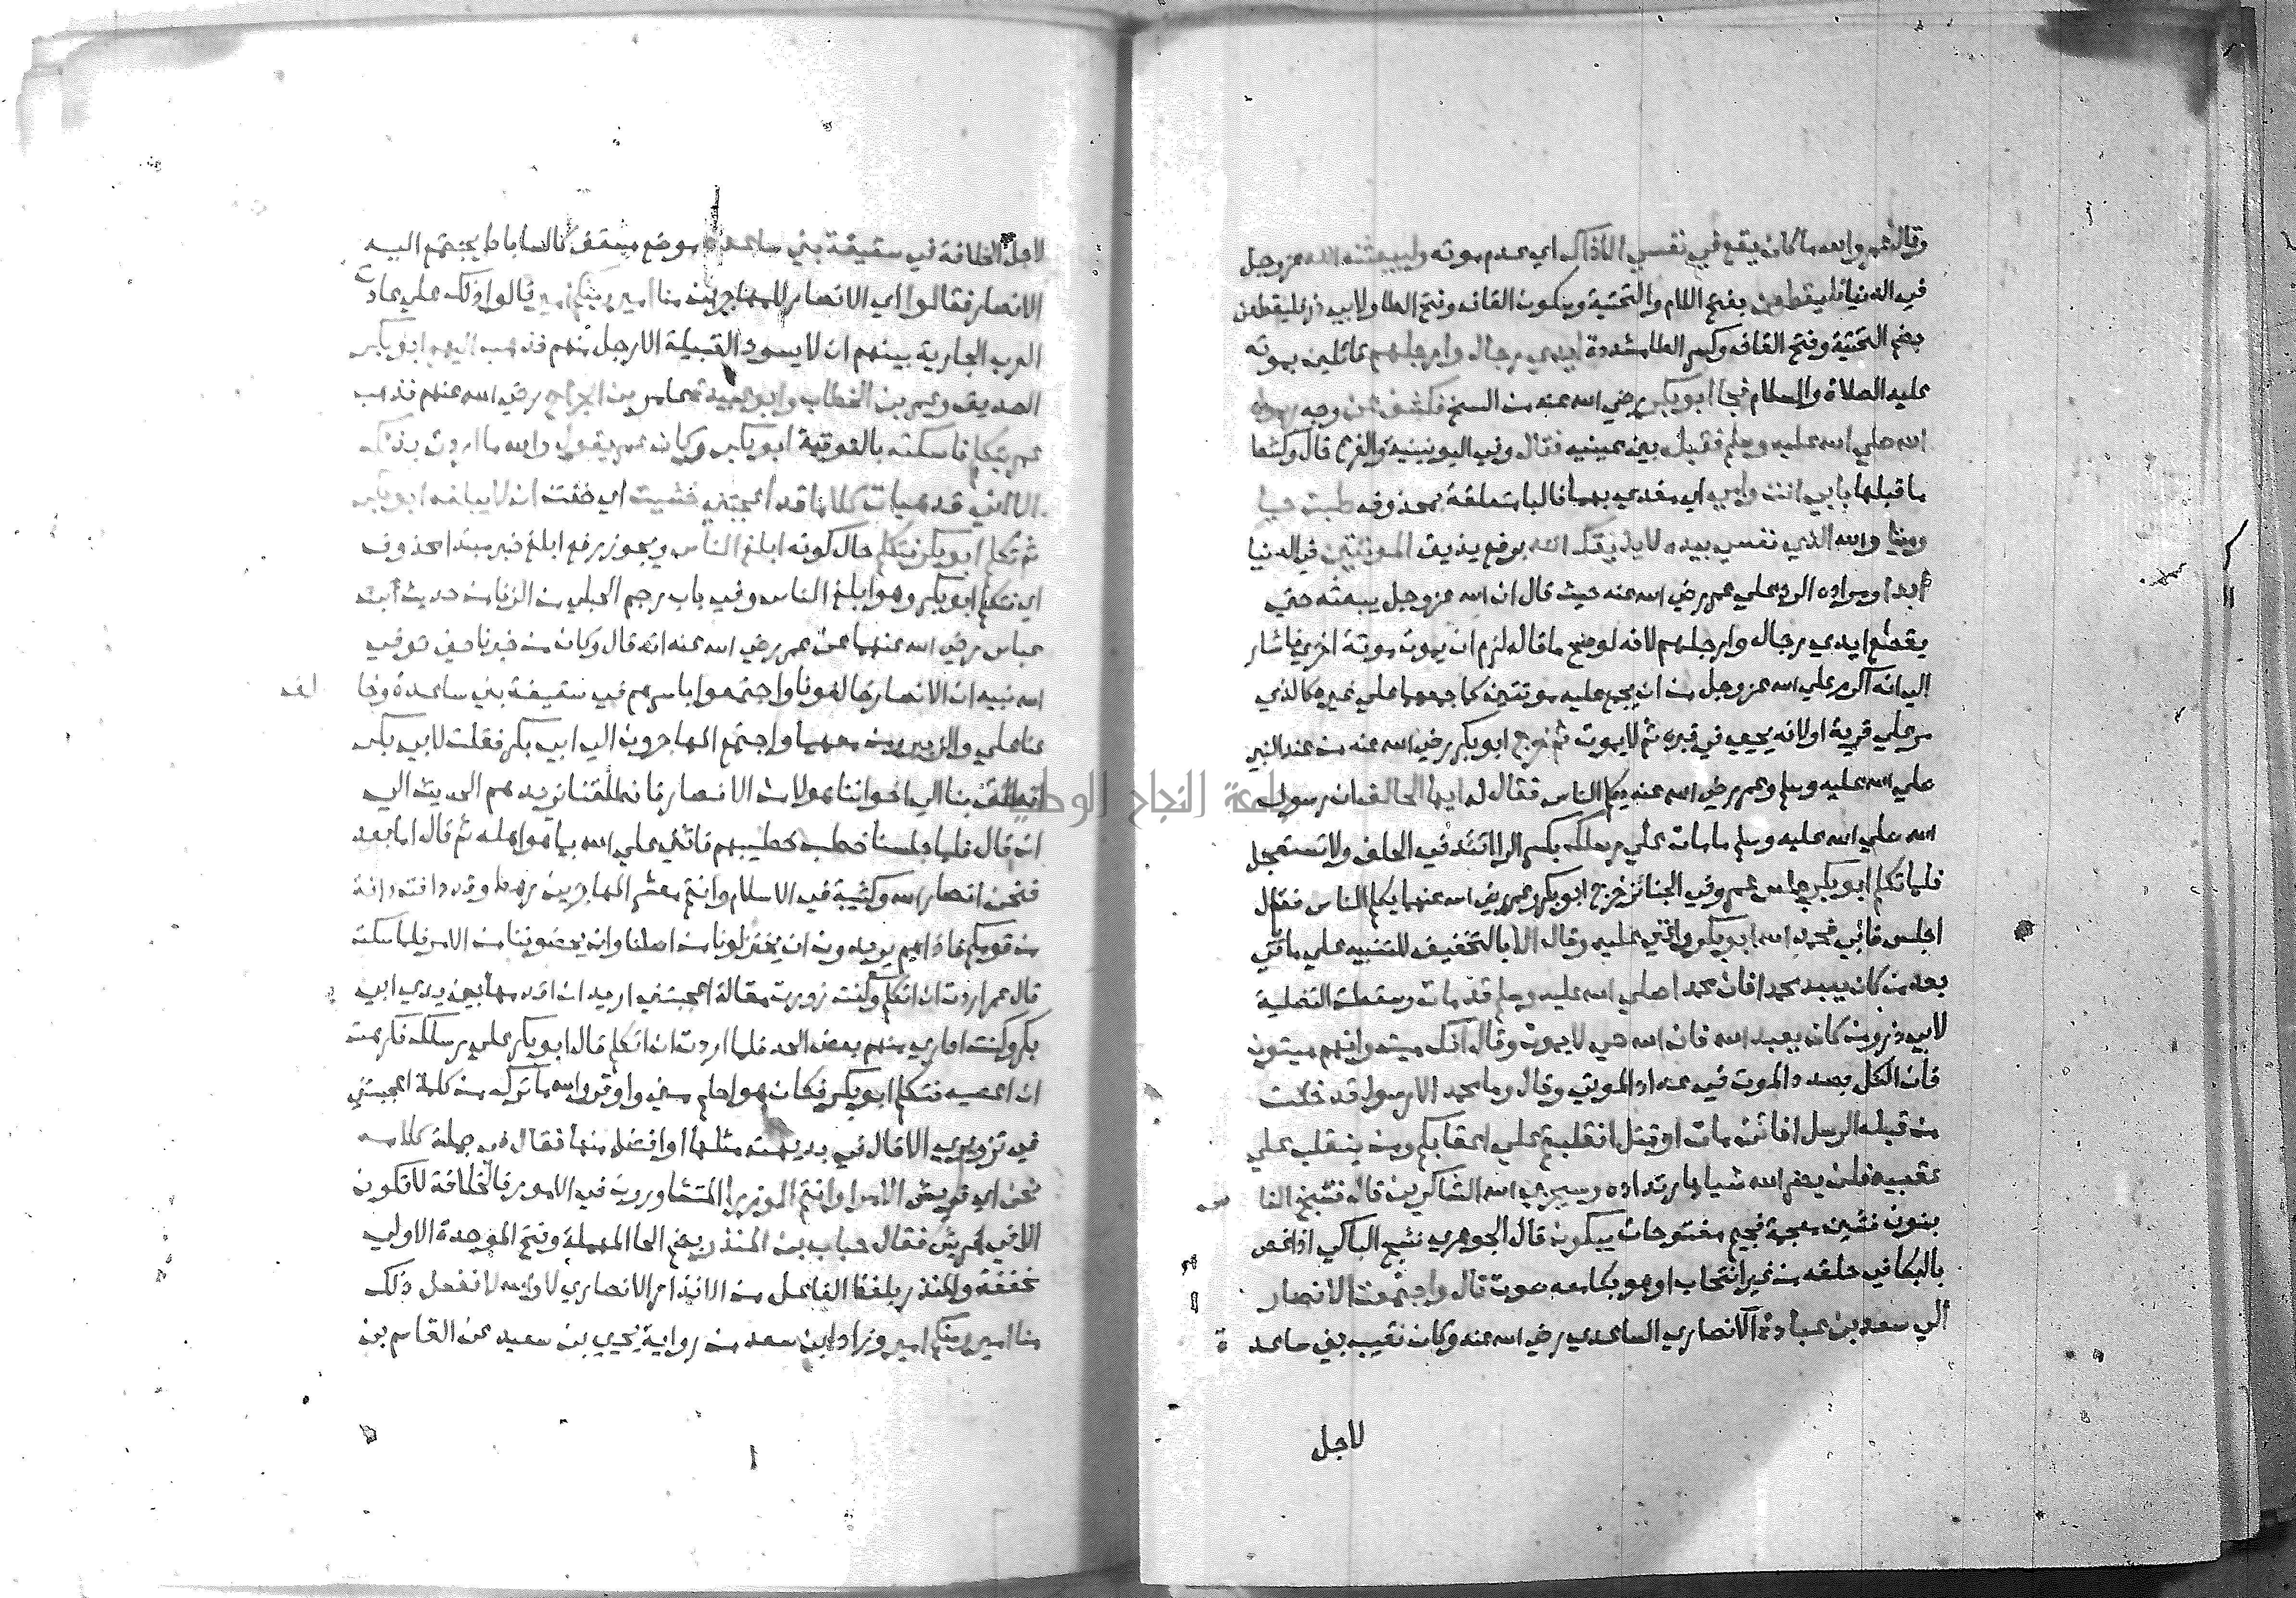 وقال عمر والله ما كان يقع في نفسي الا ذاك اي عدم موته وليبعثنه الله عز وجل
في الدنيا فليقطعن بفتح اللام والتحتية وسكون القاف وفتح الطا ولابي ذر فليقطعن
بضم التحتية وفتح القاف وكسر الطا مشددة ايدي رجال وارجلهم قائلين بموته
عليه الصلاة والسلام فجا ابو بكر رضي الله عنه من السنح فكشف عن وجه رسول
الله صلي الله عليه وسلم فقبل بين عينيه فقال وفي اليونينية والفرع قال وكشط
ما قبلها بابي انت وامي اي مفدي بهما فالبا متعلقة بمحذوف طبت حيا
وميتا والله الذي نفسي بيده لا يذيقك الله برفع يذيق الموتتين في الدنيا
ابدا ومراده الرد علي عمر رضي الله عنه حيث قال ان الله عز وجل يبعثه حتي
يقطع ايدي رجال وارجلهم لانه لو صح ما قال لزم ان يموت موتة اخري فاشار
الي انه اكرم علي الله عز وجل من ان يجمع عليه موتتين كما جمعهما علي غيره كالذي
مر علي قرية او لانه يحيي في قبره ثم لا يموت ثم خرج ابو بكر رضي الله عنه من عند النبي
صلي الله عليه وسلم وعمر رضي الله عنه يكلم الناس فقال له ايها الحالف ان رسول
الله صلي الله عليه وسلم ما مات علي رسلك بكسر الرا اتئد في الحلف ولا تستعجل
فلما تكلم ابو بكر جلس عمر وفي الجنائز خرج ابو بكر وعمر رضي الله عنهما يكلم الناس فقال
اجلس فابي فحمد الله ابو بكر واثني عليه وقال الا بالتخفيف للتنبيه علي ما ياتي
بعد من كان يعبد محمدا فان محمدا صلي الله عليه وسلم قد مات وسقطت التصلية
لابي ذر ومن كان يعبد الله فان الله حي لا يموت وقال انك ميت وانهم ميتون
فان الكل بصدد الموت في عداد الموتي وقال وما محمد الا رسول قد خلت
من قبله الرسل افائن مات او قتل انقلبتم علي اعقابكم ومن ينقلب علي
عقبيه فلن يضر الله شيا بارتداده وسيجزي الله الشاكرين قال فنشج النا
بنون فشين معجمة فجيم مفتوحات يبكون قال الجوهري نشج الباكي اذا غص
بالبكا في حلقه من غير انتحاب او هو بكا معه صوت قال واجتمعت الانصار
الي سعد بن عبادة الانصاري الساعدي رضي الله عنه وكان نقيب بني ساعدة
لاجل
لاجل الخلافة في سقيفة بني ساعدة موضع مسقف كالساباط يجتمع اليه
الانصار فقالوا اي الانصار للمهاجرين منا امير ومنكم امير قالوا ذلك علي عادة
العرب الجارية بينهم ان لا يسود القبيلة الا رجل منهم فذهب اليهم ابو بكر
الصديق وعمر بن الخطاب وابو عبيدة عامر بن الجراح رضي الله عنهم فذهب
عمر يتكلم فاسكته بالفوقية ابو بكر وكان عمر يقول والله ما اردت بذلك
الا اني قد هيات كلاما قد اعجبني خشيت اي خفت ان لا يبلغه ابو بكر
ثم تكلم ابو بكر فتكلم حال كونه ابلغ الناس ويجوز رفع ابلغ خبر مبتدا محذوف
اي فتكلم ابو بكر وهو ابلغ الناس وفي باب رجم الحبلي من الزنا من حديث ابن
عباس رضي الله عنهما عن عمر رضي الله عنه انه قال وكان من خبرنا حين توفي
الله نبيه ان الانصار خالفونا واجتمعوا باسرهم في سقيفة بني ساعدة وخا
لف
عنا علي والزبير ومن معهما واجتمع المهاجرون الي ابي بكر فقلت لابي بكر
انطلق بنا الي اخواننا هولاء من الانصار فانطلقنا نريدهم الحديث الي
ان قال فلما جلسنا خطب خطيبهم فاثني علي الله بما هو اهله ثم قال اما بعد
فنحن انصار الله وكتيبة في الاسلام وانتم معشر المهاجرين رهط وقد دفت دافة
من قومكم فاذا هم يريدون ان يختزلونا من اصلنا وان يحضوننا من الامر فلما سكت
قال عمر اردت ان اتكلم وكنت زورت مقالة اعجبتني اريد ان اقدمها بين يدي ابي
بكر وكنت اداري منهم بعض الحد فلما اردت ان اتكلم قال ابو بكر علي رسلك فكرهت
ان اعصيه فتكلم ابو بكر فكان هو احلم مني واوقر والله ما ترك من كلمة اعجبتني
في تزويري الا قال في بديهته مثلها او افضل منها فقال في جملة كلامه
نحن اي قريش الامرا وانتم الوزرا المتشاورون في الامور فالخلافة لا تكون
الا في قريش فقال حباب بن المنذر بضم الحا المهملة وفتح الموحدة الاولي
مخففة والمنذر بلفظ الفاعل من الانذار الانصاري لا والله لا نفعل ذلك
منا امير ومنكم امير وزاد ابن سعد من رواية يحيي بن سعيد عن القاسم بن